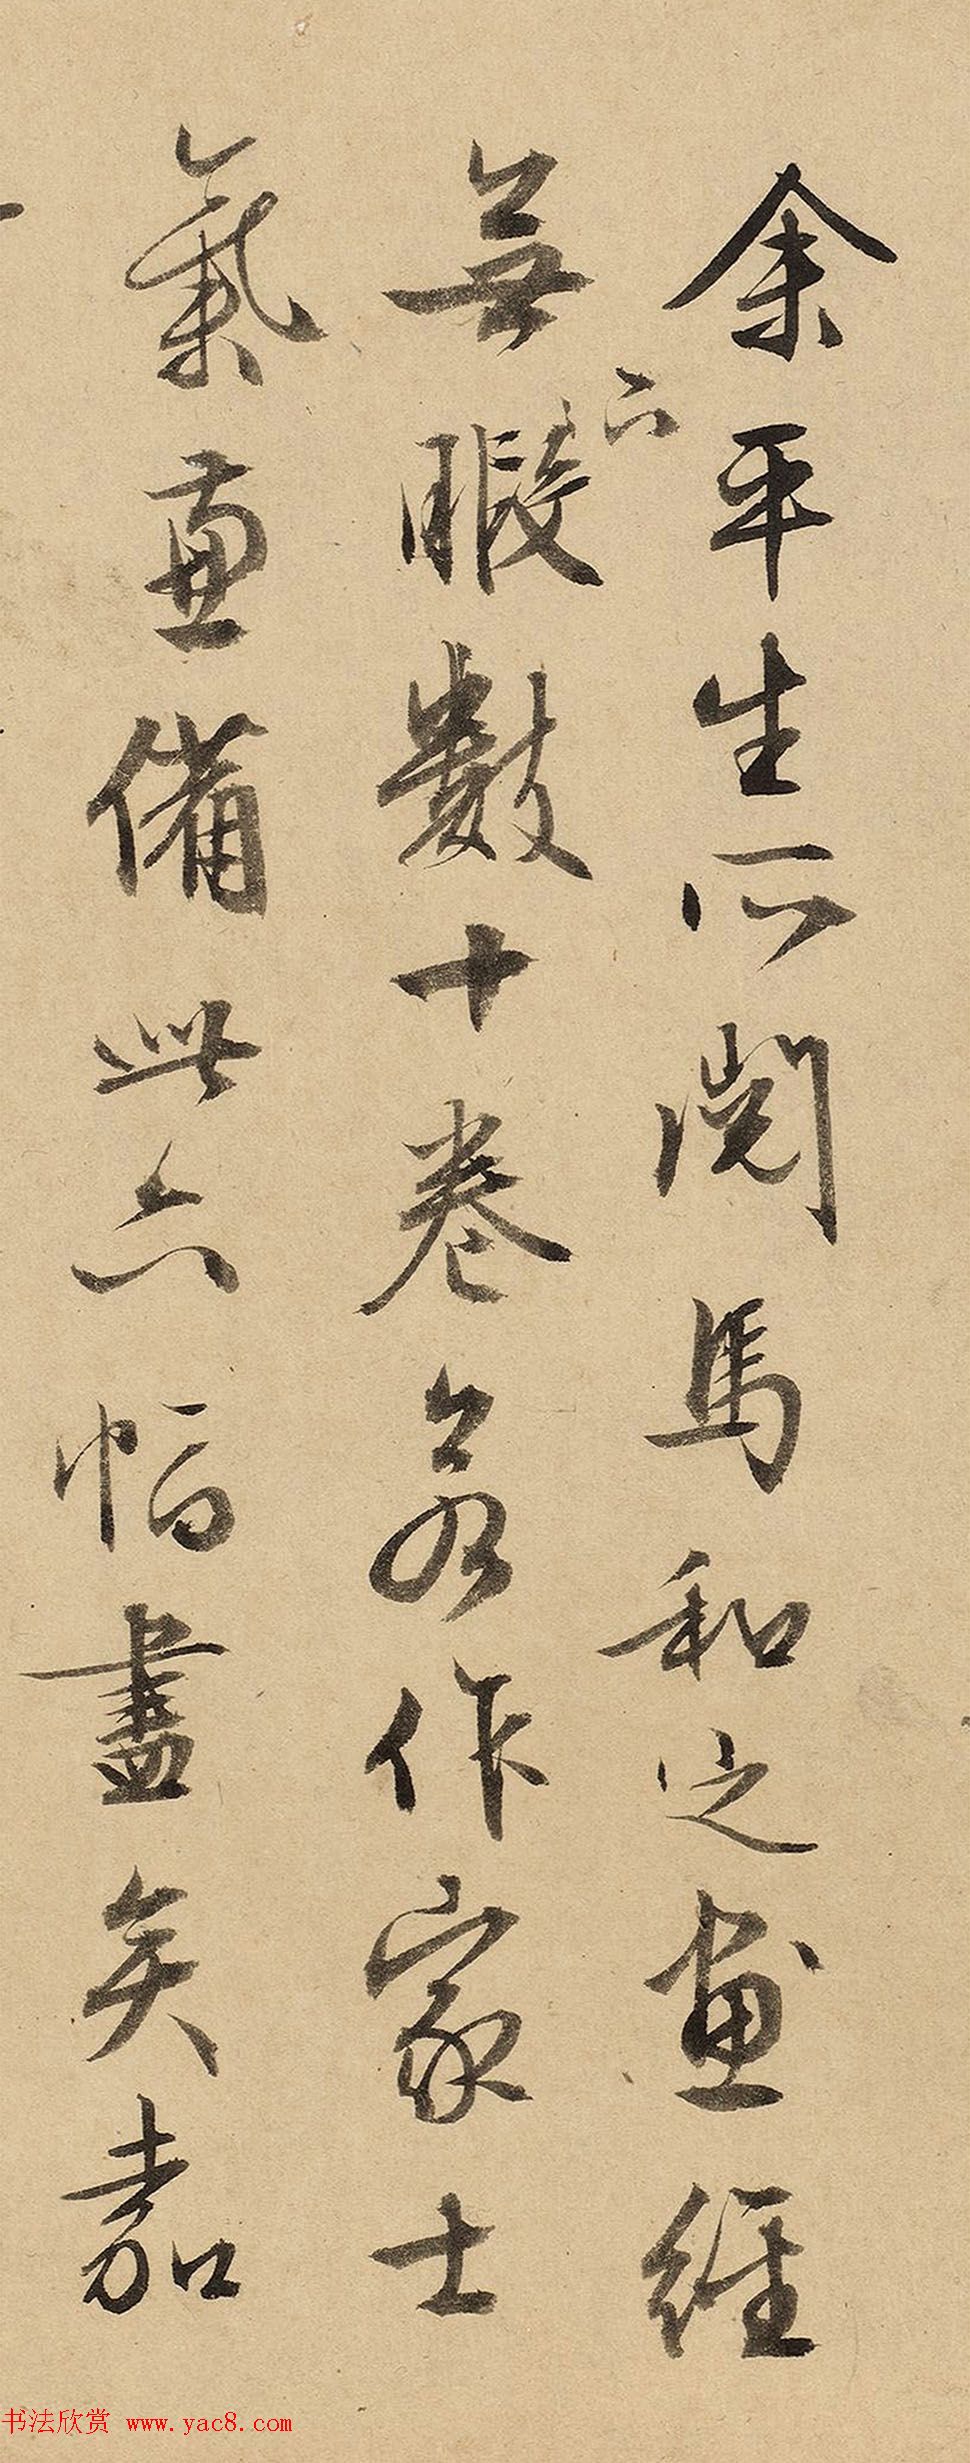 余平生所閱馬和之畫
無暇數十卷若作家士
氣兼備此六幅盡矣嘉
书法欣赏 www.yac8.com